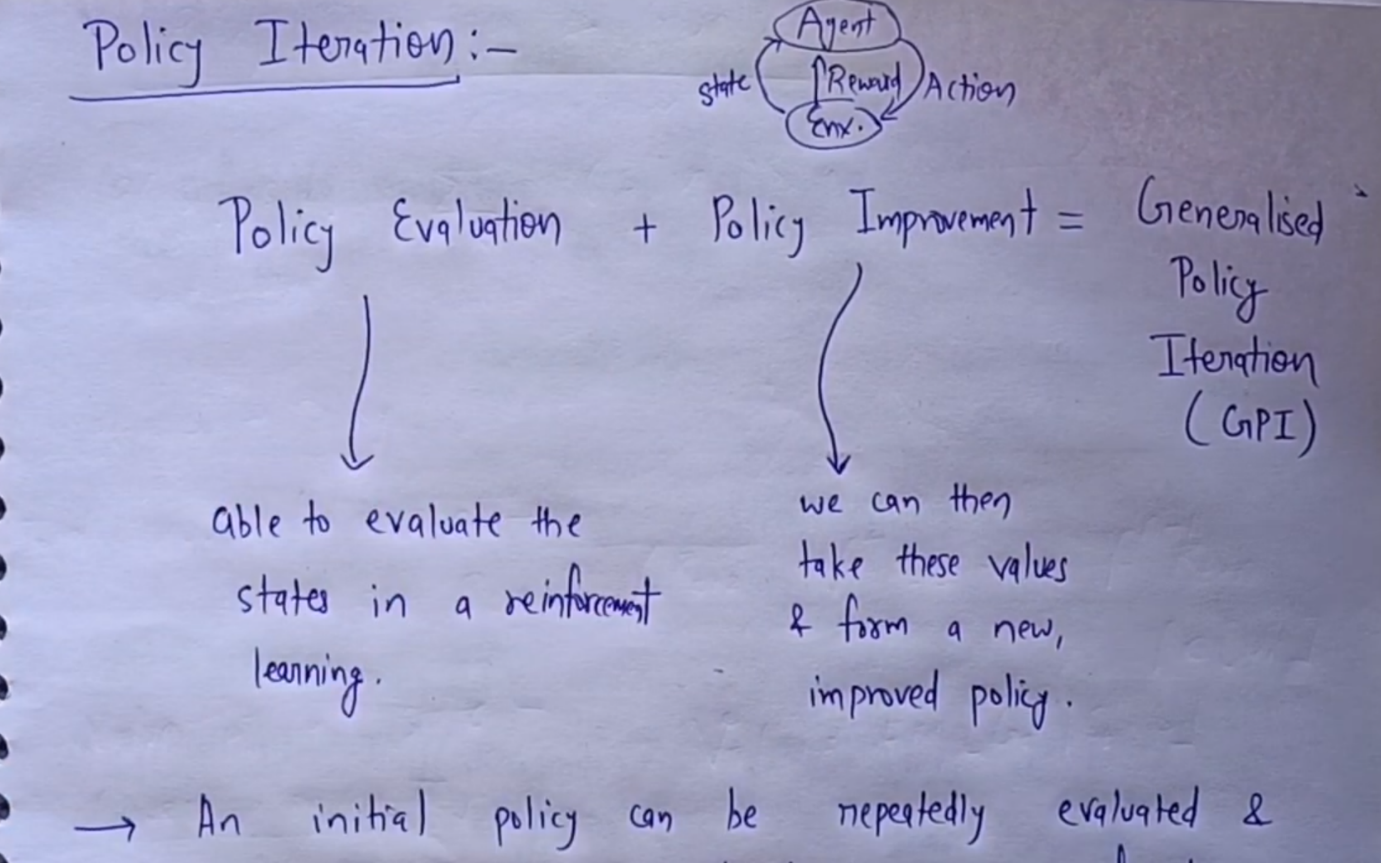 Policy Iteration :-
Agent
state
Reward
Action
Env.
Policy Evaluation + Policy Improvement = Generalised
Policy
Iteration
(GPI)
able to evaluate the
states in a reinforcement
learning.
we can then
take these values
& form a new,
improved policy.
→ An initial policy can be repeatedly evaluated &